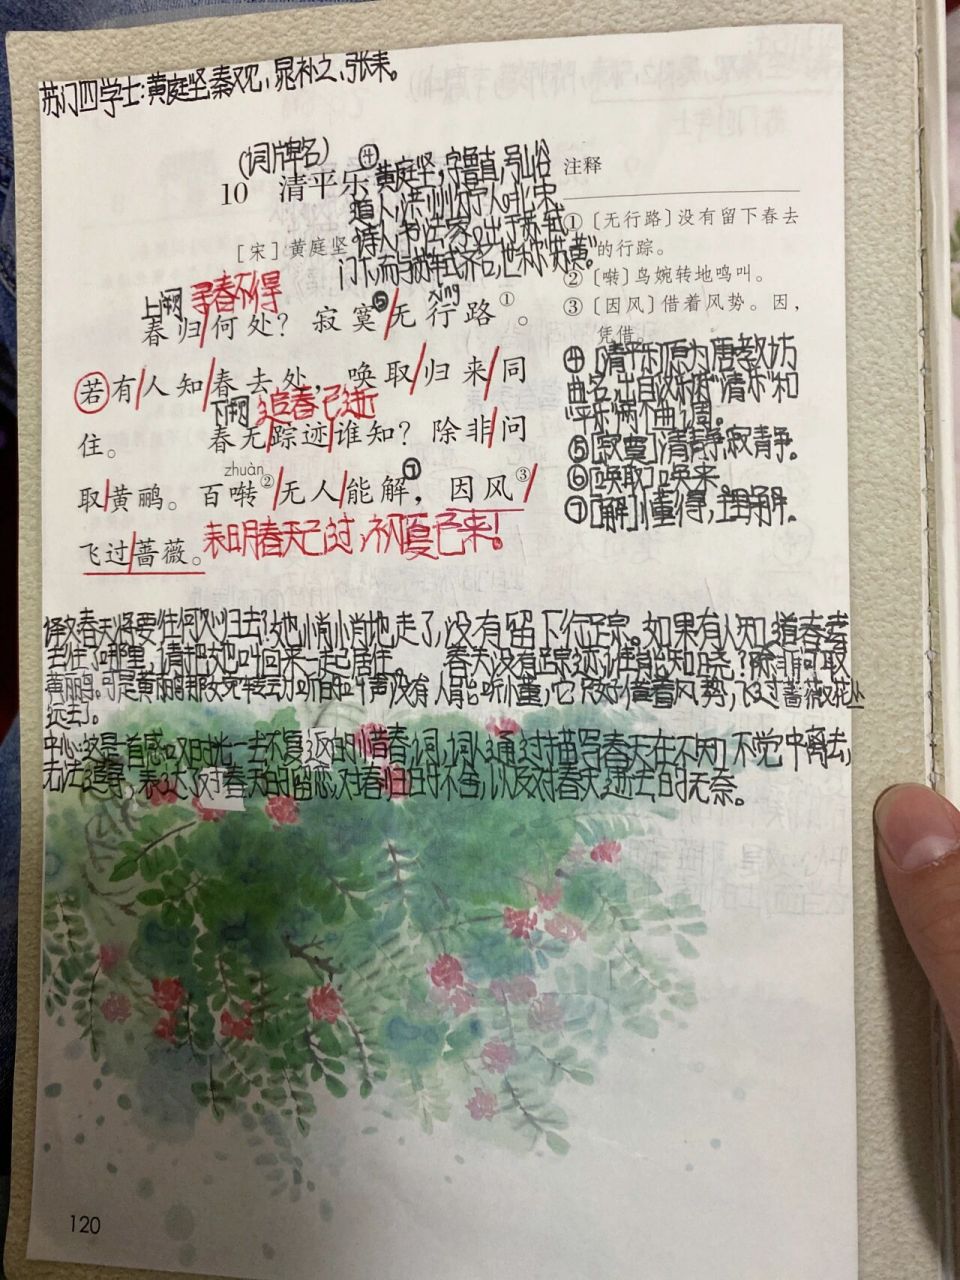 苏门四学士:黄庭坚,秦观,晁补之,张耒。
(词牌名)
10 清平乐④
黄庭坚,字鲁直,号山谷
道人,洪州分宁人,北宋
诗人,书法家,出于苏轼
门下,而与苏轼齐名,世称“苏黄”。
[宋] 黄庭坚
上阕 寻春不得
xíng
春归何处?寂寞⑤无行路①。
若有人知春去处,唤取归来同
下阕 追春已逝
住。 春无踪迹谁知?除非问
zhuàn
取黄鹂。百啭②无人能解⑦,因风③
飞过蔷薇。
表明春天已过,初夏已来!
注释
①〔无行路〕没有留下春去
的行踪。
②〔啭〕鸟婉转地鸣叫。
③〔因风〕借着风势。因,
凭借。
④[清平乐]原为唐教坊
曲名,出自汉乐府“清乐”和
“平乐”两个曲调。
⑤[寂寞]清静,寂静。
⑥[唤取]唤来。
⑦[解]懂得,理解。
译文:春天将要往何处归去?她悄悄地走了,没有留下行踪。如果有人知道春若
住在了哪里,请把她叫回来一起居住。 春天没有踪迹,谁能知晓?除非问取
黄鹂。可是黄鹂那婉转动听的叫声没有人能听懂,它只好借着风势,飞过蔷薇花丛
远去了。
中心:这是一首感叹时光一去不复返的惜春词,词人通过描写春天在不知不觉中离去,
无法追寻,表达了对春天的留恋,对春归的不舍,以及对春天逝去的无奈。
120